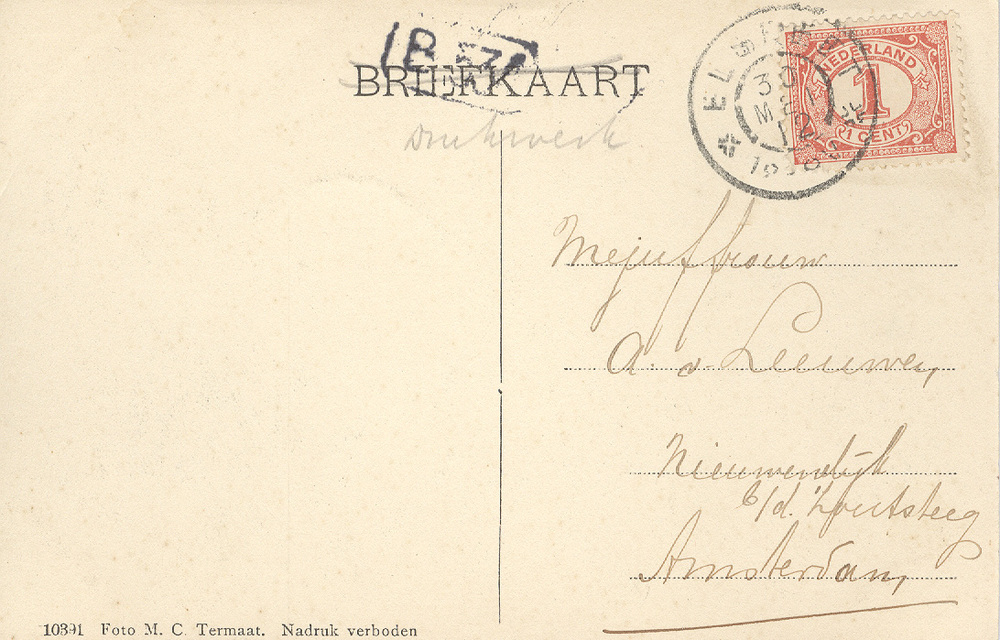 BRIEFKAART
drukwerk
NEDERLAND
1
1 CENT
30
MEI
12
Mejuffrouw
A. v. Leeuwen,
Nieuwendijk
b/d. Zoutsteeg
Amsterdam,
10391 Foto M. C. Termaat. Nadruk verboden